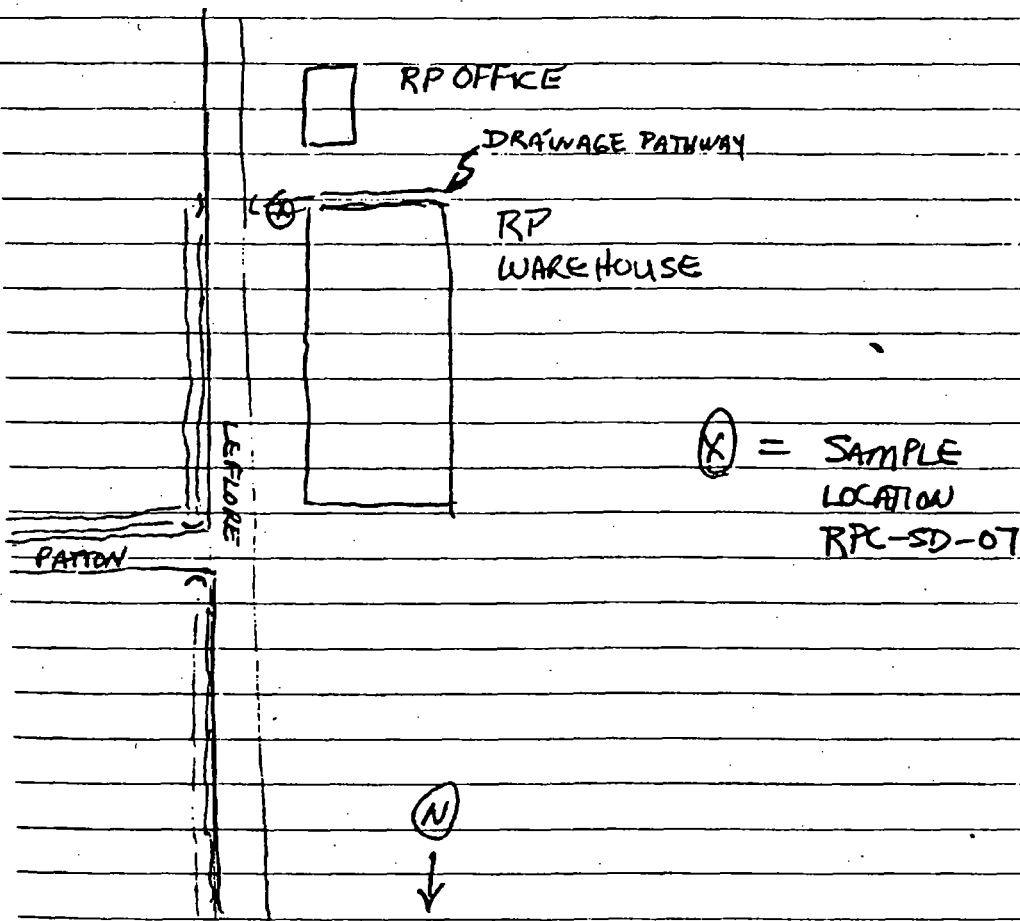 RP OFFICE
DRAINAGE PATHWAY
X
RP
WAREHOUSE
LEFLORE
X = SAMPLE
LOCATION
RPC-SD-07
PATTON
N